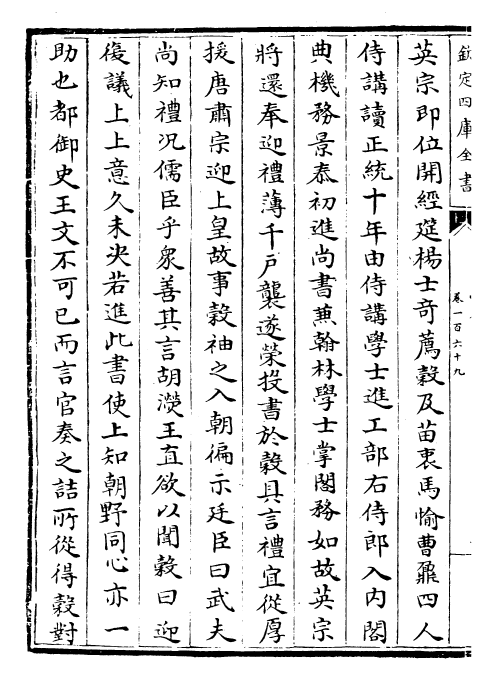 欽定四庫全書
卷一百六十九
英宗即位開經筵楊士奇薦穀及苗衷馬愉曹鼐四人
侍講讀正統十年由侍講學士進工部右侍郎入內閣
典機務景泰初進尚書兼翰林學士掌閣務如故英宗
將還奉迎禮薄千戶襲遂榮投書於穀具言禮宜從厚
援唐肅宗迎上皇故事穀袖之入朝徧示廷臣曰武夫
尚知禮況儒臣乎衆善其言胡濙王直欲以聞穀曰迎
復議上上意久未決若進此書使上知朝野同心亦一
助也都御史王文不可已而言官奏之詰所從得穀對